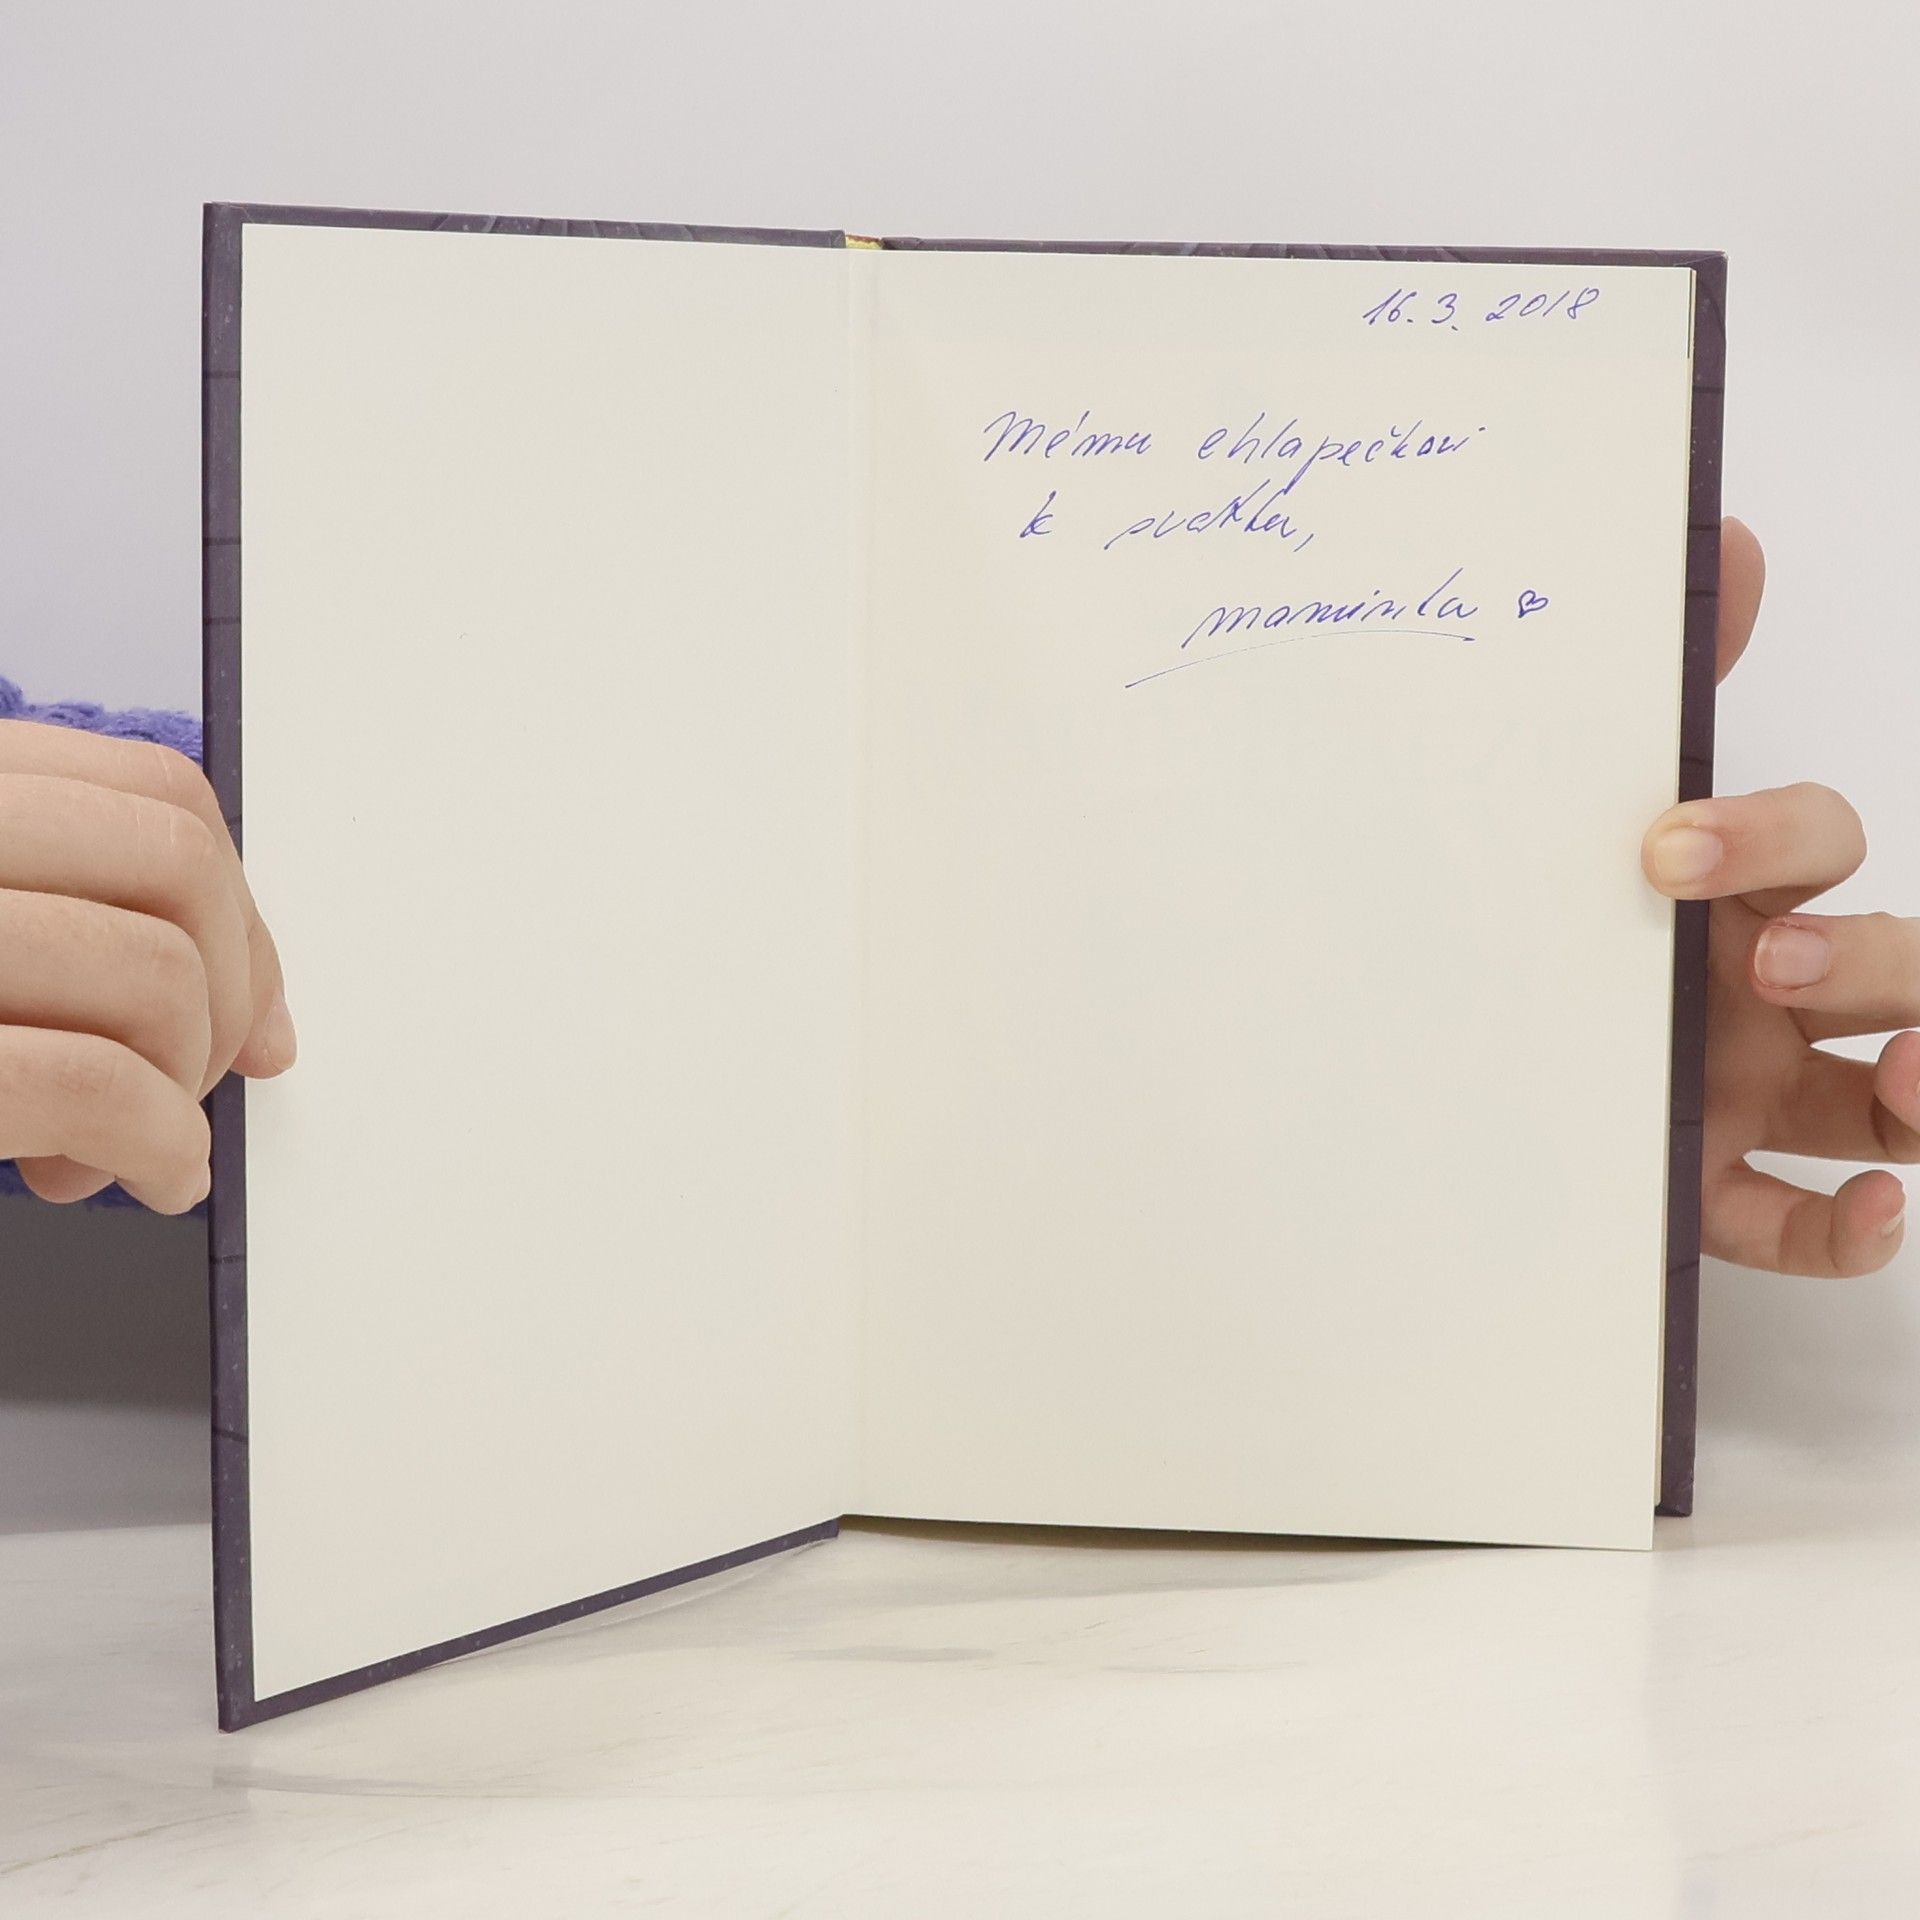 16. 3. 2018
Mému chlapečkovi
k svátku,
maminka ♡